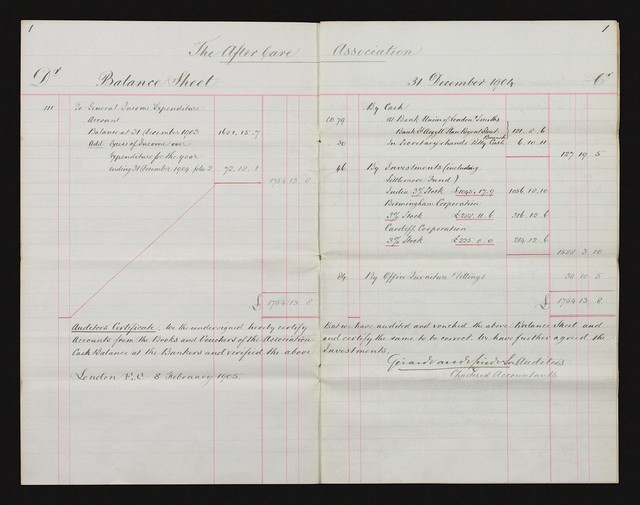 1
1
The After Care Association
Dr Balance Sheet 31 December 1904 Cr
To General Income & Expenditure
Account
Balance at 31 December 1903 1681. 15. 7
Add Excess of Income over
Expenditure for the year
ending 31 December 1904 folio 2 72. 18. 1
1754 13. 8
£ 1754 13. 8
By Cash
At Bank Union of London & Smiths
Bank Ld Argyll Place Regent Street
Branch 121. 8. 6
30 In Secretary's hands Petty Cash 6. 10. 11
127. 19. 5
46 By Investments (including
Settlement Fund)
India 3% Stock £1045. 17. 9 1036. 18. 10
Birmingham Corporation
3% Stock
Cardiff Corporation
3% Stock £225. 0. 0
1588. 3. 10
84 By Office Furniture & Fittings 38. 10. 5
£ 1754 13. 8
Auditors Certificate. We the undersigned hereby certify that we have audited and vouched the above Balance Sheet and
Accounts from the Books and Vouchers of the Association and certify the same to be correct. We have further agreed the
Cash Balance at the Bankers and verified the above Investments.
London E.C. 8 February 1905.
Auditors
Chartered Accountants